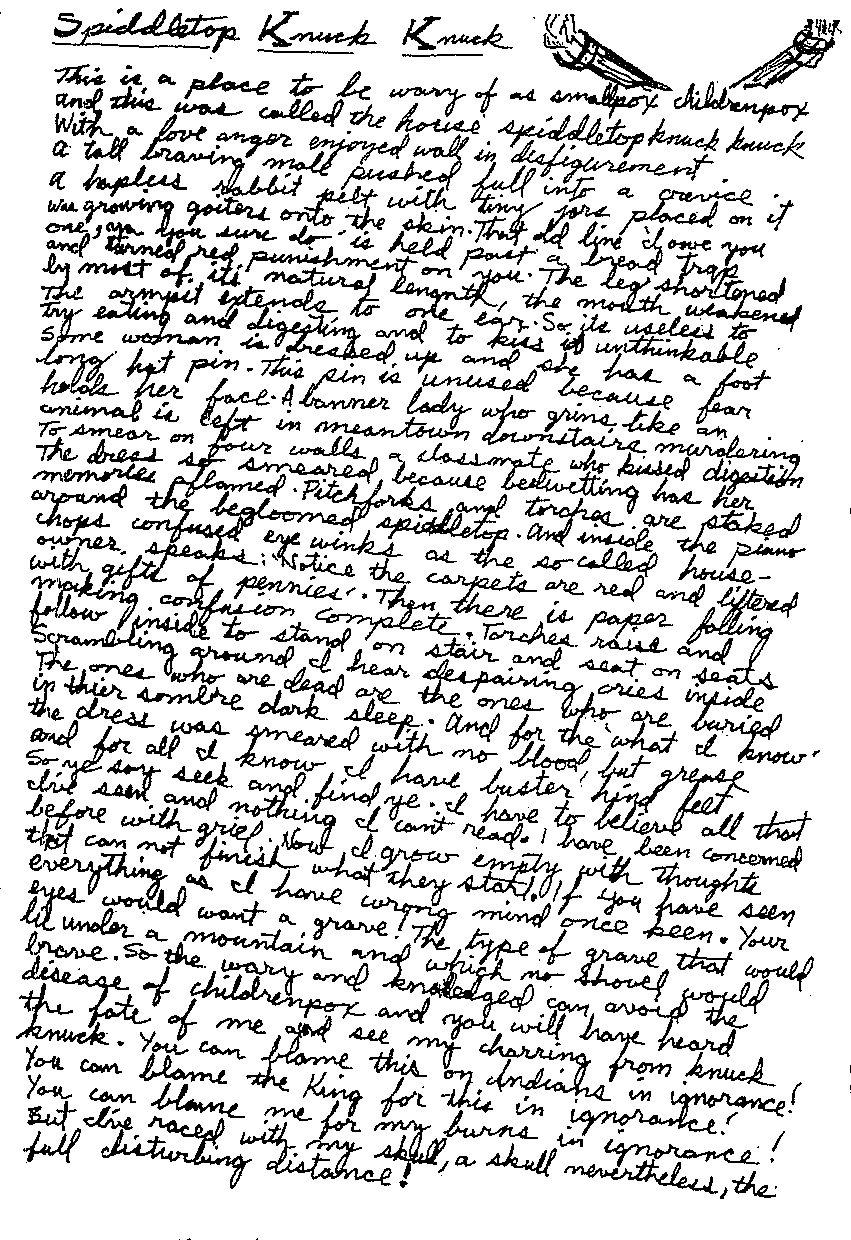 Spiddletop Knuck Knuck
This is a place to be wary of as smallpox childrenpox
and this was called the house spiddletop knuck knuck
With a love anger enjoyed wall in disfigurement
A tall braving male pushed full into a crevice.
A hapless rabbit pelt with tiny jars placed on it
was growing goiters onto the skin. That old line 'I owe you
one, ya you sure do' is held past a bread trap
and turned red punishment on you. The leg shortened
by most of its natural length, the mouth weakened
The armpit extends to one ear. So its useless to
try eating and digesting and to kiss is unthinkable
Some woman is dressed up and she has a foot
long hat pin. This pin is unused because fear
holds her face. A banner lady who grins like an
animal is left in meantown downstairs murdering
To smear on four walls a classmate who kissed digestion
The dress so smeared because bedwetting has her
memories aflamed. Pitchforks and torches are staked
around the begloomed spiddletop. And inside the piano
chops confused eye winks as the so called house-
owner speaks: 'Notice the carpets are red and littered
with gifts of pennies'. Then there is paper falling
making confusion complete. Torches raise and
follow inside to stand on stair and seat on seats
Scrambling around I hear despairing cries inside
The ones who are dead are the ones who are buried
in thier sombre dark sleep. And for the 'what I know'
the dress was smeared with no blood, but grease
and for all I know I have buster hind feet
So ye say seek and find ye. I have to believe all that
I've seen and nothing I cant read. I have been concerned
before with grief. Now I grow empty with thoughts
that can not finish what they start. If you have seen
everything as I have wrong mind once keen. Your
eyes would want a grave! The type of grave that would
lil under a mountain and which no shovel would
brave. So the wary and knoledged can avoid the
disease of childrenpox and you will have heard
the fate of me and see my charring from knuck
knuck. You can blame this on Indians in ignorance!
You can blame the King for this in ignorance!
You can blame me for my burns in ignorance!
But I've raced with my skull, a skull nevertheless, the
full disturbing distance!